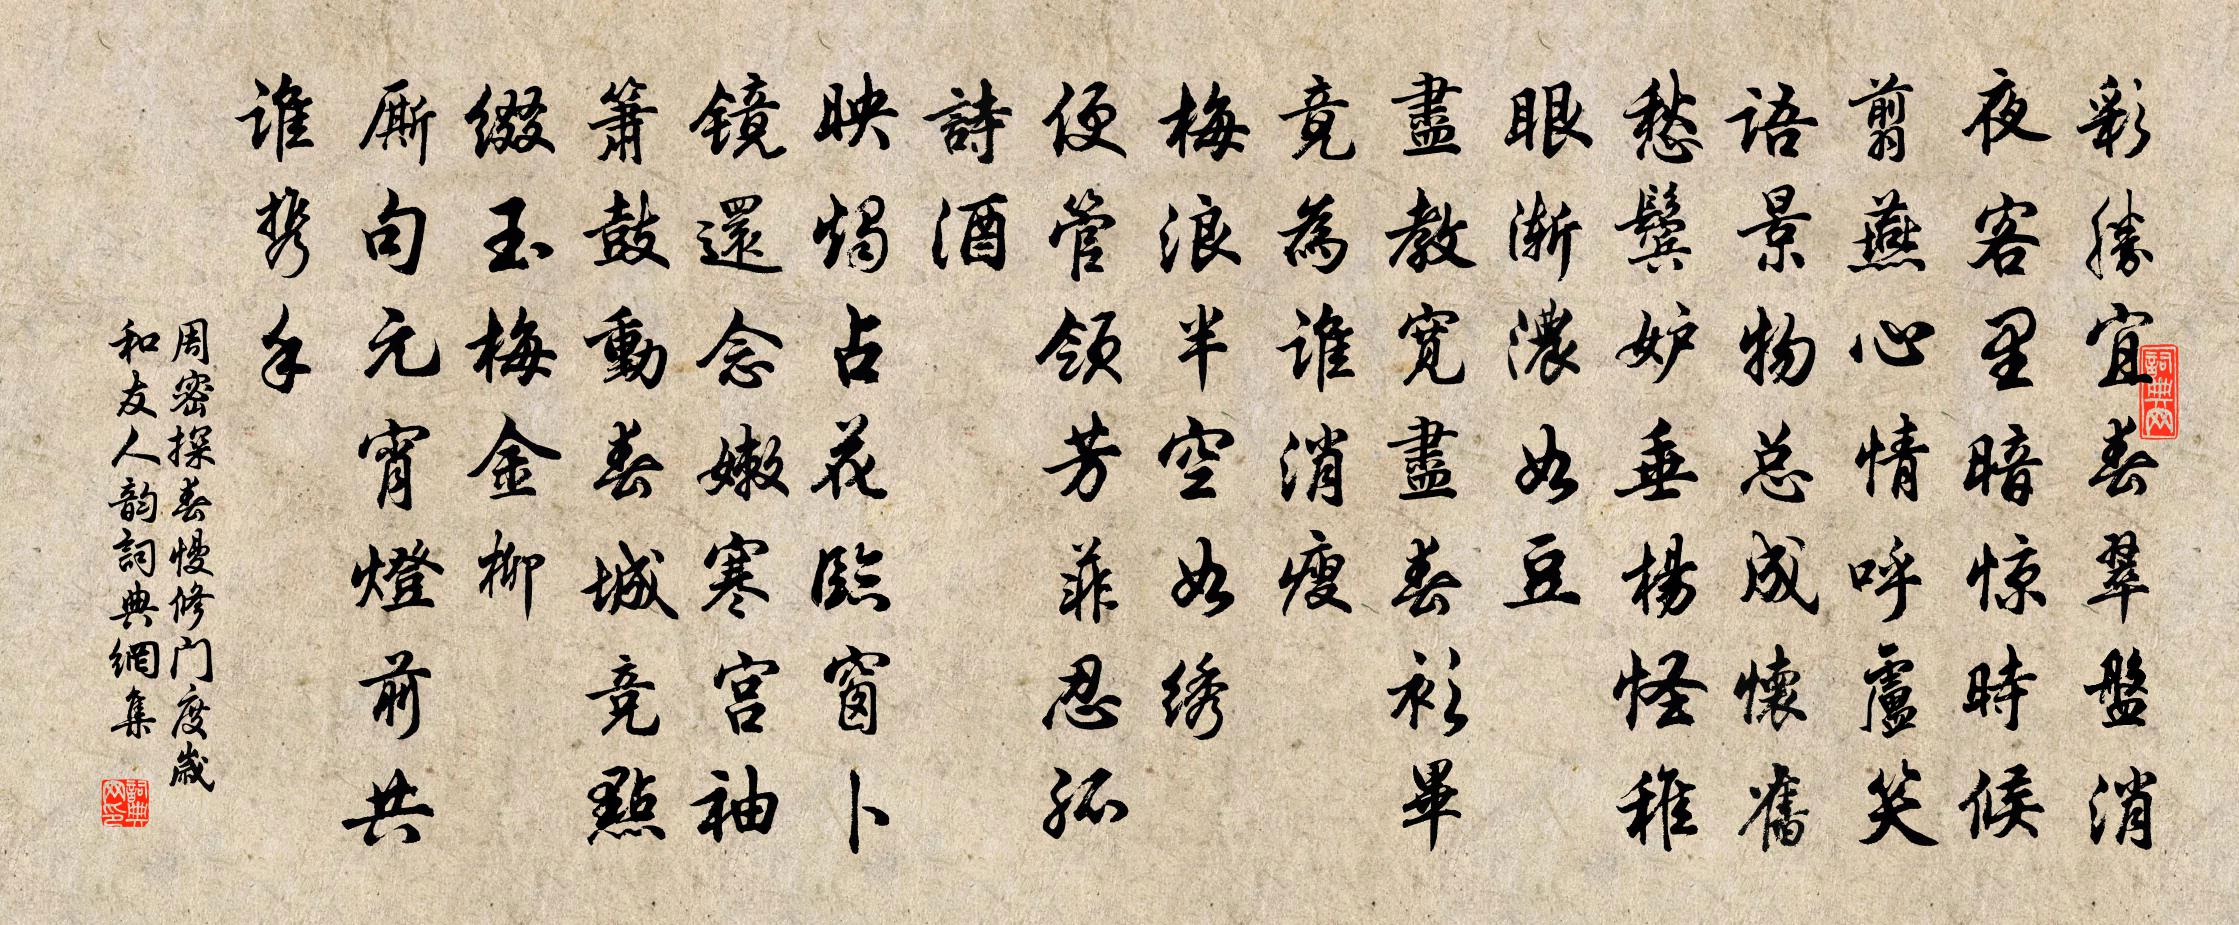 彩勝宜春翠盤消
夜客里暗惊時候
翦燕心情呼盧笑
语景物总成懷舊
愁鬓妒垂楊怪稚
眼渐濃如豆
盡教寬盡春衫畢
竟為谁消瘦
梅浪半空如绣
便管领芳菲忍孤
詩酒
映燭占花臨窗卜
镜還念嫩寒宫袖
箫鼓動春城竞點
缀玉梅金柳
厮句元宵燈前共
谁携手
周密探春慢修门度歲
和友人韵詞典網集
詞典网
詞典网印